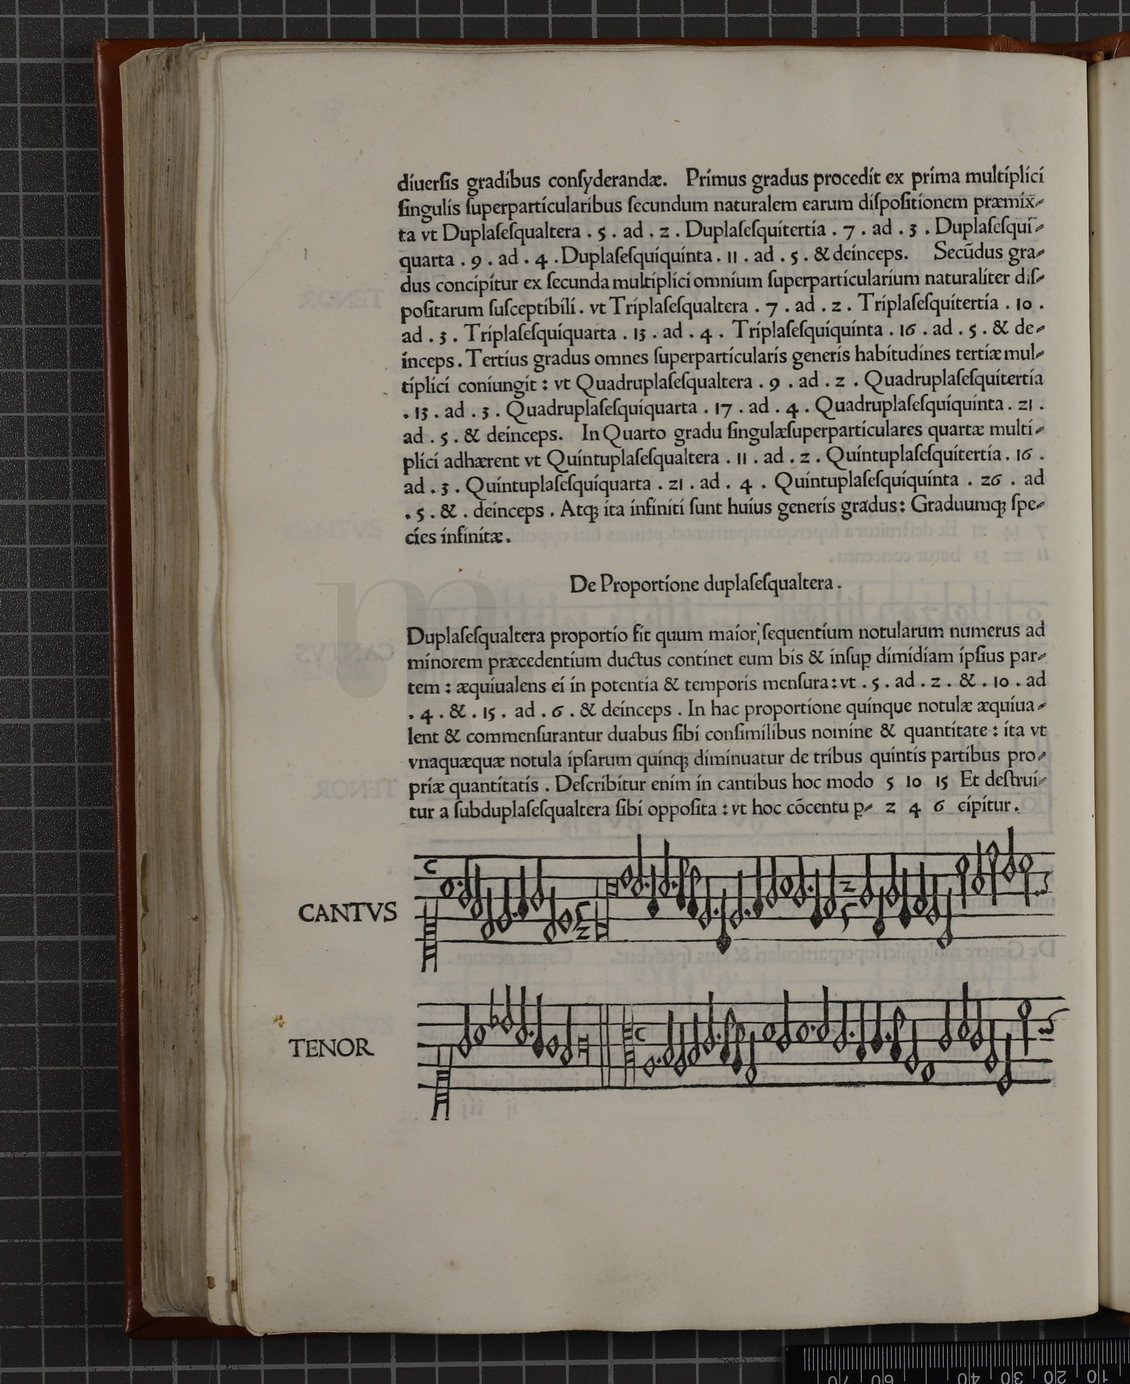 diuerſis gradibus conſyderandæ. Primus gradus procedit ex prima multiplici
ſingulis ſuperparticularibus ſecundum naturalem earum diſpoſitionem præmix-
ta vt Duplaſeſqualtera . 5 . ad . 2 . Duplaſeſquitertia . 7 . ad . 3 . Duplaſeſqui-
quarta . 9 . ad . 4 . Duplaſeſquiquinta . 11 . ad . 5 . & deinceps. Secūdus gra-
dus concipitur ex ſecunda multiplici omnium ſuperparticularium naturaliter diſ-
poſitarum ſuſceptibili . vt Triplaſeſqualtera . 7 . ad . 2 . Triplaſeſquitertia . 10 .
ad . 3 . Triplaſeſquiquarta . 13 . ad . 4 . Triplaſeſquiquinta . 16 . ad . 5 . & de-
inceps . Tertius gradus omnes ſuperparticularis generis habitudines tertiæ mul-
tiplici coniungit : vt Quadruplaſeſqualtera . 9 . ad . 2 . Quadruplaſeſquitertia
. 13 . ad . 3 . Quadruplaſeſquiquarta . 17 . ad . 4 . Quadruplaſeſquiquinta . 21 .
ad . 5 . & deinceps. In Quarto gradu ſingulæ ſuperparticulares quartæ multi-
plici adhærent vt Quintuplaſeſqualtera . 11 . ad . 2 . Quintuplaſeſquitertia . 16 .
ad . 3 . Quintuplaſeſquiquarta . 21 . ad . 4 . Quintuplaſeſquiquinta . 26 . ad
. 5 . & . deinceps . Atqꝫ ita infiniti ſunt huius generis gradus : Graduumqꝫ ſpe-
cies infinitæ .
De Proportione duplaſeſqualtera .
Duplaſeſqualtera proportio fit quum maior ſequentium notularum numerus ad
minorem præcedentium ductus continet eum bis & inſuꝑ dimidiam ipſius par-
tem : æquiualens ei in potentia & temporis menſura : vt . 5 . ad . 2 . & . 10 . ad
. 4 . & . 15 . ad . 6 . & deinceps . In hac proportione quinque notulæ æquiua-
lent & commenſurantur duabus ſibi conſimilibus nomine & quantitate : ita vt
vnaquæquæ notula ipſarum quinqꝫ diminuatur de tribus quintis partibus pro-
priæ quantitatis . Deſcribitur enim in cantibus hoc modo 5 10 15 Et deſtrui-
tur a ſubduplaſeſqualtera ſibi oppoſita : vt hoc cōcentu ꝑ- 2 4 6 cipitur .
CANTVS
TENOR